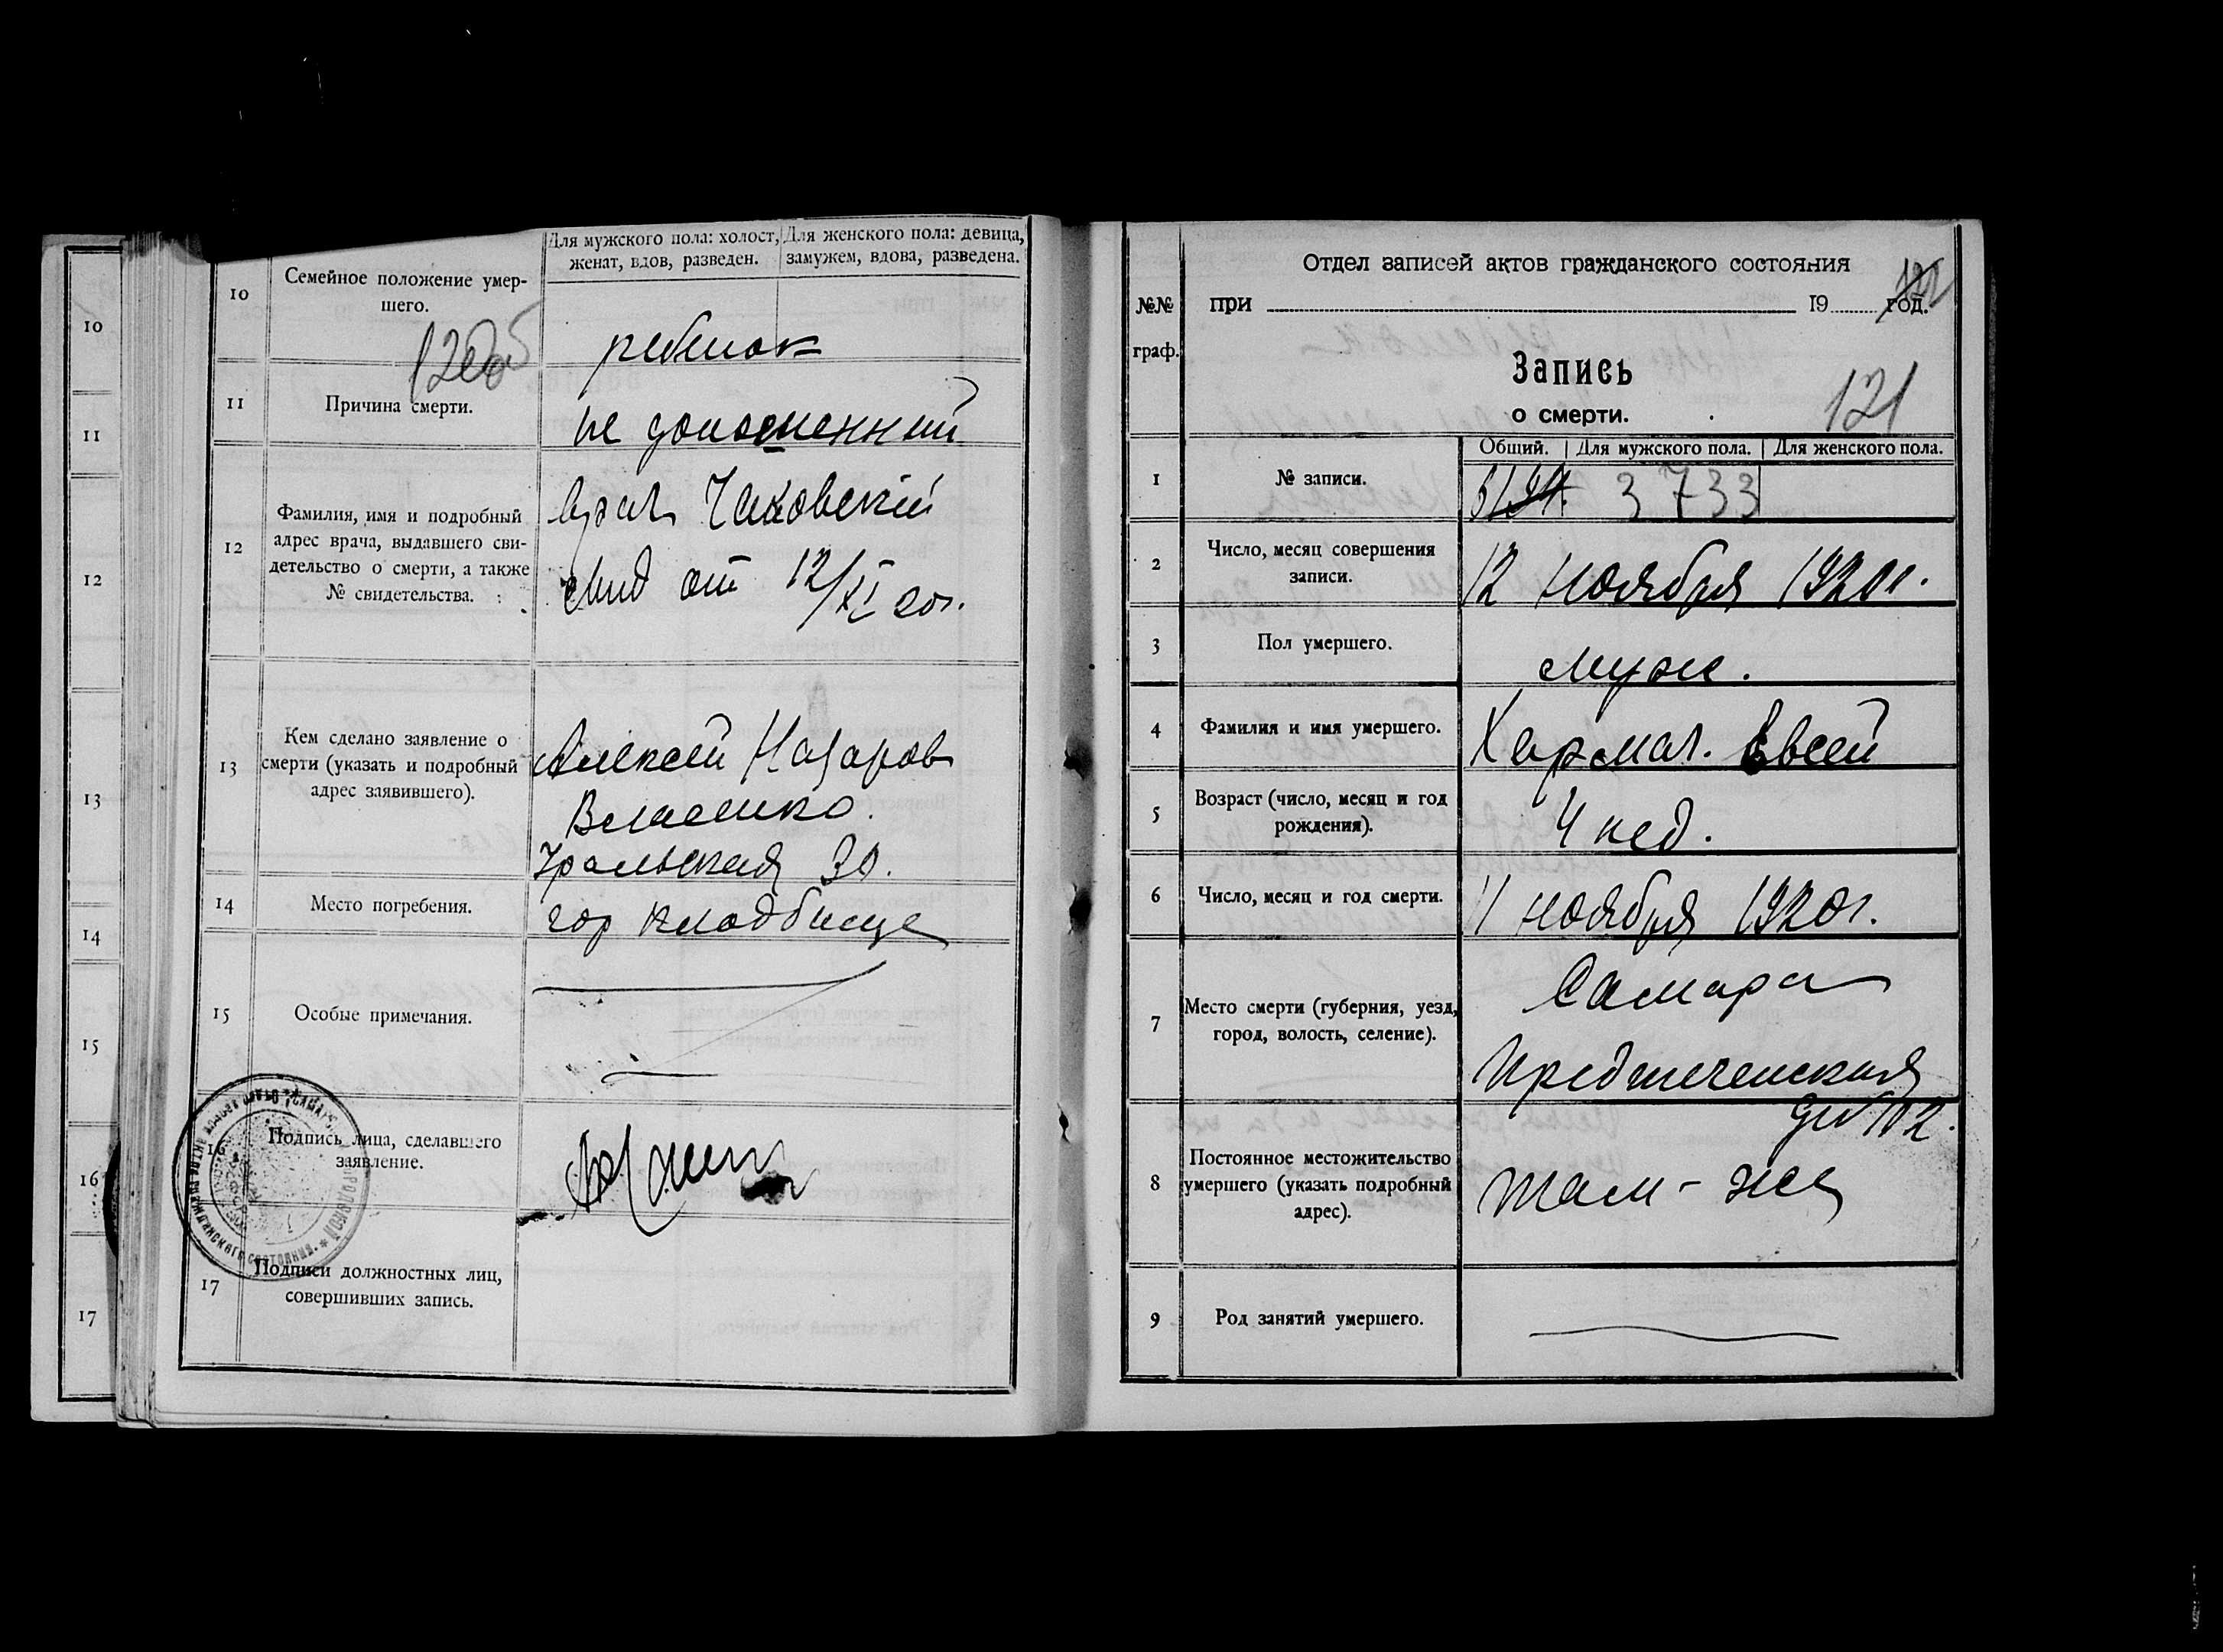 10
11
12
13
14
15
16
17
10
Семейное положение умер-
шего.
Для мужского пола: холост,
женат, вдов, разведен.
Для женского пола: девица,
замужем, вдова, разведена.
ребенок
11
Причина смерти.
не доношенный
12
Фамилия, имя и подробный
адрес врача, выдавшего сви-
детельство о смерти, а также
№ свидетельства.
врач
от 12/XI 20г.
13
Кем сделано заявление о
смерти (указать и подробный
адрес заявившего).
Алексей Назаров
Уральская 30.
14
Место погребения.
гор кладбище
15
Особые примечания.
16
Подпись лица, сделавшего
заявление.
17
Подписи должностных лиц,
совершивших запись.
№№
граф.
Отдел записей актов гражданского состояния
при 19 год.
Запись
о смерти.
121
Общий. Для мужского пола. Для женского пола.
1
№ записи.
3733
2
Число, месяц совершения
записи.
12 ноября 1920г.
3
Пол умершего.
муж.
4
Фамилия и имя умершего.
Хармач. Евсей
5
Возраст (число, месяц и год
рождения).
4 нед.
6
Число, месяц и год смерти.
11 ноября 1920г.
7
Место смерти (губерния, уезд,
город, волость, селение).
Самара
Предтеченская
8
Постоянное местожительство
умершего (указать подробный
адрес).
там-же
9
Род занятий умершего.